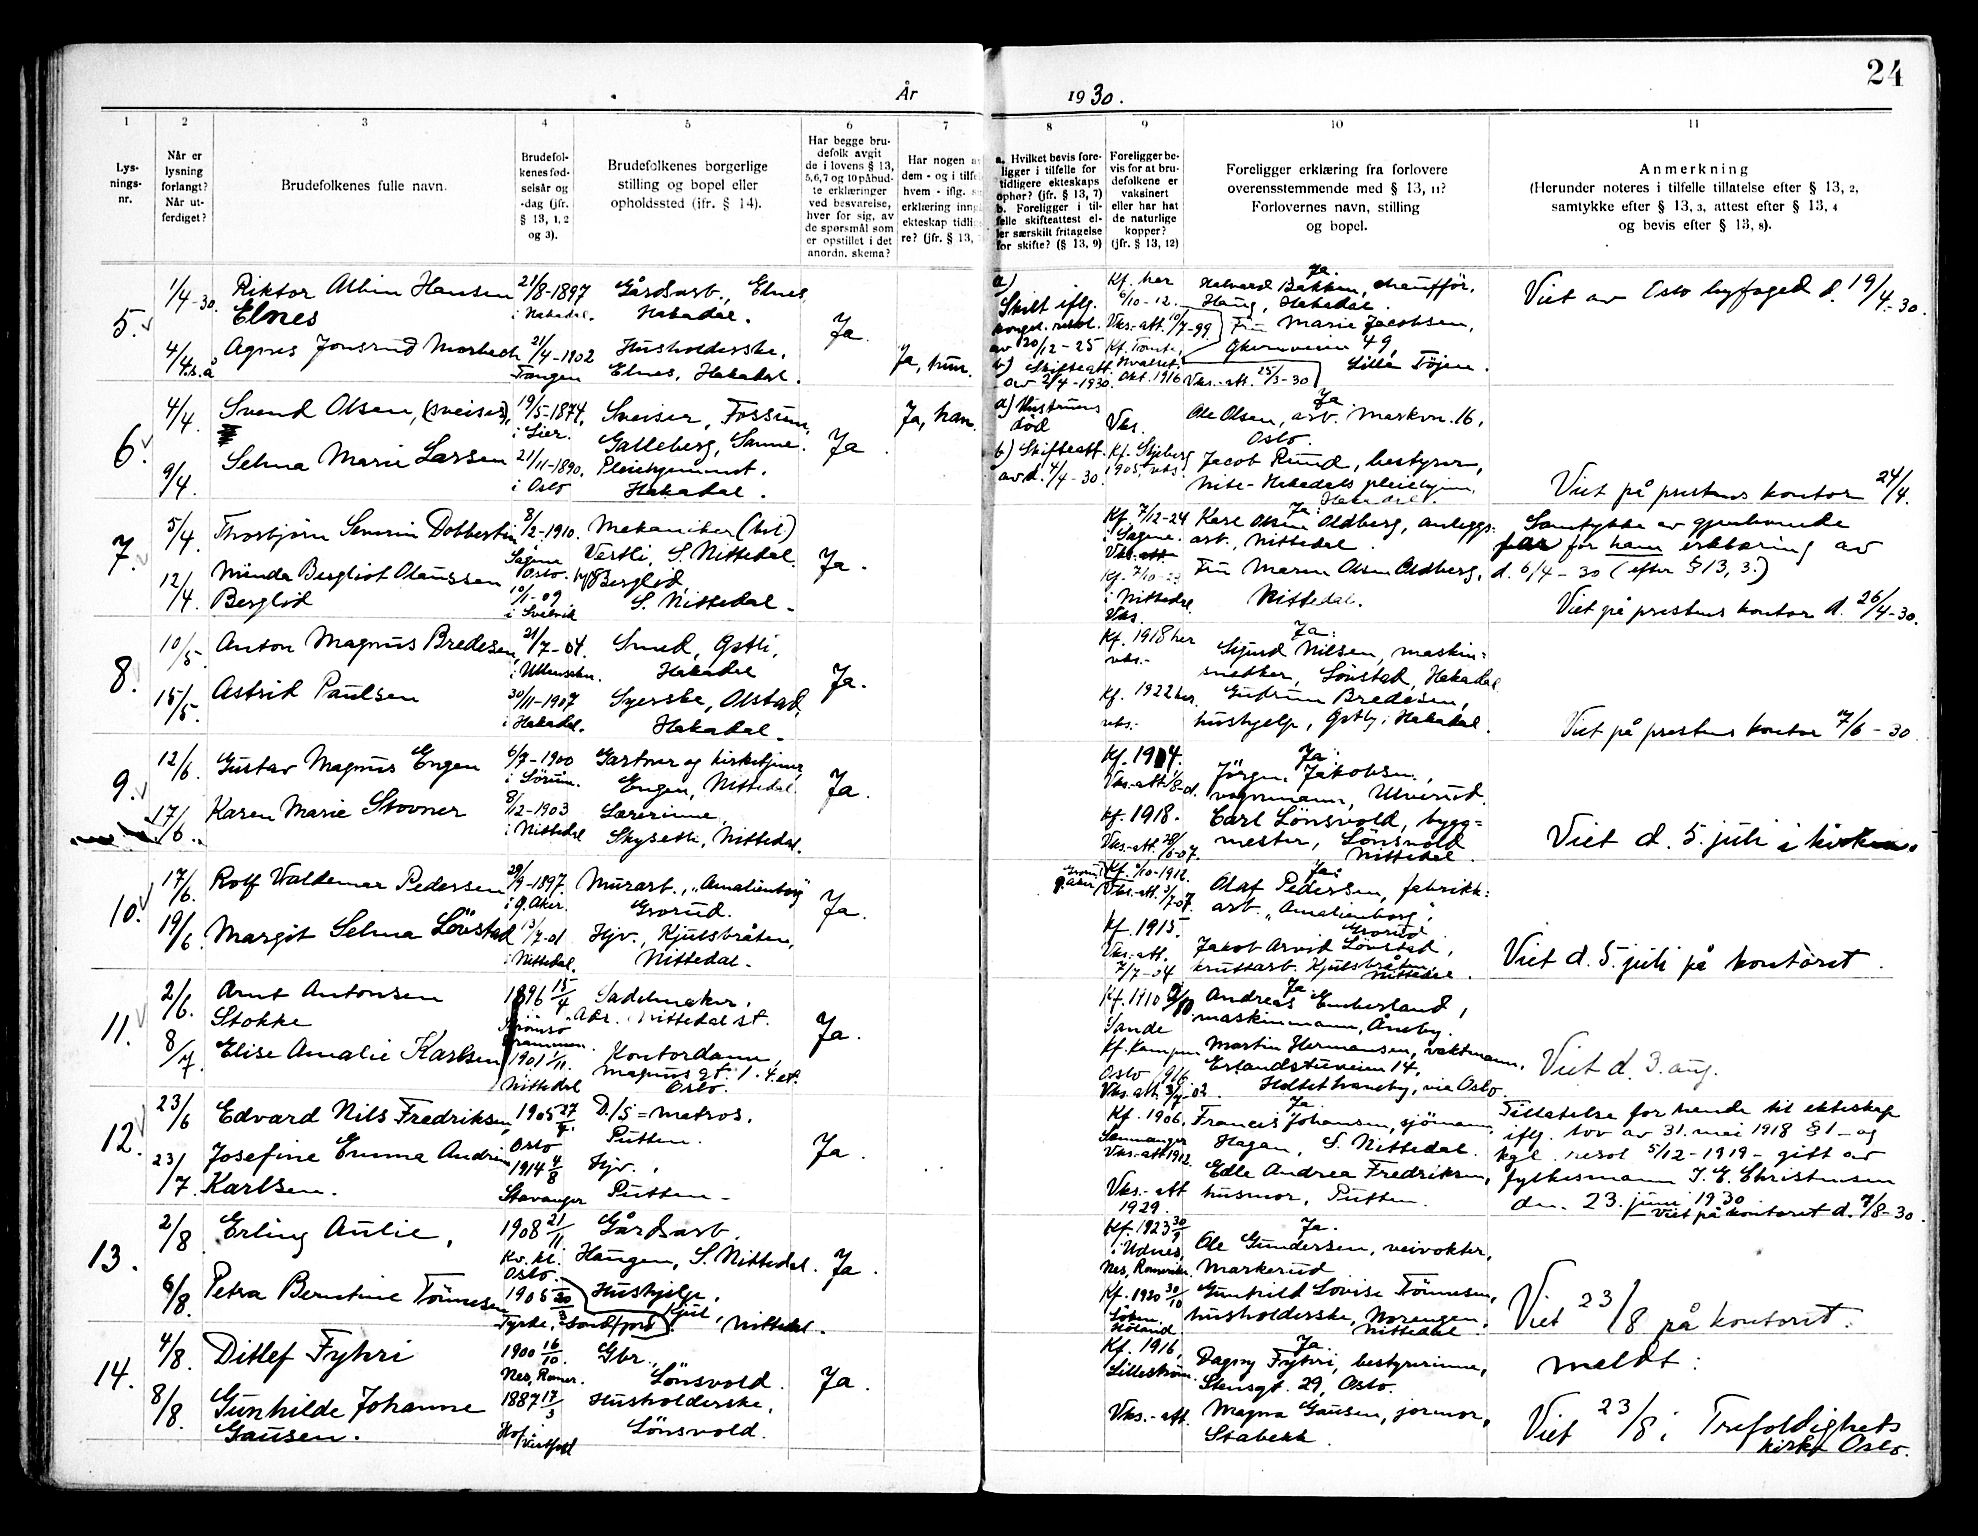 24
År 1930.
1 2 3 4 5 6 7 8 9 10 11
Lysningsnr.
Når er lysning forlangt? Når utferdiget?
Brudefolkenes fulle navn.
Brudefolkenes fødselsår og -dag (jfr. § 13, 1, 2 og 3).
Brudefolkenes borgerlige stilling og bopel eller opholdssted (ifr. § 14).
Har begge brudefolk avgit de i lovens § 13, 5,6,7 og 10 påbudte erklæringer ved besvarelse, hver for sig, av de spørsmål som er opstillet i det anordn. skema?
Har nogen
dem - og i
hvem - iflg.
erklæring
ekteskap
re? (jfr. § 13,
a. Hvilket bevis foreligger i tilfelle for tidligere ekteskaps ophør? (jfr. § 13, 7)
b. Foreligger i tilfelle skifteattest eller særskilt fritagelse for skifte? (§ 13, 9)
Foreligger bevis for at brudefolkene er vaksinert eller har hat de naturlige kopper? (jfr. § 13, 12)
Foreligger erklæring fra forlovere overensstemmende med § 13, 11? Forlovernes navn, stilling og bopel.
Anmerkning
(Herunder noteres i tilfelle tillatelse efter § 13, 2, samtykke efter § 13, 3, attest efter § 13, 4 og bevis efter § 13, 8).
5.
1/4-30.
Riktor Albin Hansen
Elnes
21/8-1897
i Hakadal.
Gårdsarb., Elnes,
Hakadal.
4/4. s.å
Agnes Jonsrud Morbech
21/4-1902
Tangen
Husholderske,
Elnes, Hakadal.
Ja
Ja, hun.
a)
Skilt iflg.
kongel. resol.
av 20/12-25
b) Skifteatt.
av 2/4-1930.
Kf. her
6/10-12.
Vks.-att. 10/7-99
Kf. Tomte,
Okt. 1916 Vks.-att. 25/3-30
Ja.
Halvard Bakken, chaufför,
Haug, Hakadal.
Fru Marie Jacobsen,
49,
Lille Tøjen.
Viet av Oslo byfoged d. 19/4-30.
6.
4/4.
Svend Olsen, (sveiser),
19/5-1874,
i Lier.
Sveiser, Fossum,
Galleberg, Sanne.
9/4.
Selma Marie Larsen
21/11-1890.
i Oslo
Pleiehjemmet,
Hakadal.
Ja
Ja, han.
a) Hustruens
död
b) Skifteatt.
avd. 4/4-30.
Vks.
Kf. Skjeberg
1905, vks.
Ja
Ole Olsen, arb. Markvn. 16,
Oslo.
Jacob Rund, bestyrer,
Nite-Hakedals pleiehjem,
Hakedal.
Viet på prestens kontor 24/4.
7.
5/4.
Thorbjørn Severin Dobbertin
8/2-1910.
Sagene
Oslo.
Mekaniker (bil)
Vestli, S. Nittedal.
12/4.
Minda Bergliot Olaussen
Berglid
10/1-09
i Svelvik
Berglid
S. Nittedal.
Ja.
Kf. 7/12-24
i Sagene.
Vks.att.
Kf. 7/10-23
i Nittedal
Vks.
Ja:
Karl Olsen Oldberg, anleggs-
arb., Nittedal.
Fru Maren Olsen Oldberg,
Nittedal.
Samtykke av gjenlevende
far for ham erklæring av
d. 6/4-30 (efter § 13, 3.)
Viet på prestens kontor d. 26/4-30.
8.
10/5.
Anton Magnus Bredesen,
21/7-04.
i Ullensaker.
Smed, Gstli,
Hakadal
15/5.
Astrid Paulsen
30/11-1907
i Hakadal.
Syerske, Olstad,
Hakadal.
Ja.
Kf. 1918 her
vks.-
Kf. 1922 her,
vks.-
Ja:
Sigurd Nilsen, maskin-
snedker, Lönstad, Hakadal
Gudrun Bredesen,
hushjelp, Gstby, Hakadal.
Viet på prestens kontor 7/6-30
9.
12/6.
Gustav Magnus Engen
6/7-1900
i Sörum.
Gartner og kirketjener,
Engen, Nittedal.
17/6.
Karen Marie Stovner
8/12-1903
i Nittedal
Lærerinne,
Skysetli, Nittedal.
Ja.
Kf. 1914.
Kf. 1918.
Vks.-att. 28/6-07.
Ja:
Jörgen Jakobsen,
vognmann, Ulverud.
Carl Lönsvold, bygg-
mester, Lönsvold
Nittedal.
Viet d. 5. juli i kirken.
10.
17/6.
Rolf Valdemar Pedersen
29/9-1897.
i Ø. Aker.
Murarb., "Amalienborg"
Grorud.
19/6.
Margit Selma Lövstad
13/7-01
i Nittedal.
Hjv., Kjulsbråten,
Nittedal.
Ja.
Grorud,
Ø. Aker
Kf. 6/10-1912.
Vks.-att. 3/7-07.
Kf. 1915.
Vks.-att.
7/7-04
Ja:
Olaf Pedersen, fabrikk-
arb. "Amalienborg",
Grorud.
Jakob Arvid Lövstad,
kruttarb. Kjulsbråten
Nittedal.
Viet d. 5. juli på kontoret.
11.
2/6.
Arnt Antonsen
Stokke
1896 15/4
Strömsö
Drammen.
Sadelmaker,
Adr. Nittedal st.
8/7.
Elise Amalie Karlsen
1901 1/11.
Nittedal
Kontordame,
Magnus gt. 1. 4. et.
Oslo.
Ja.
Kf. 1910
Sande
Kf. Kampen
Oslo 1916
Ja:
Andreas Emberland,
maskinmann, Åneby.
Martin Hermansen, vaktmann,
Erlandstuveien 14,
Holtet, via Oslo
Viet d. 3. aug.
12.
23/6
Edvard Nils Fredriksen,
1905 27/4.
Oslo
D/S-matros.
Putten.
23/7.
Josefine Emma Andrea
Karlsen.
1914 4/8
Stavanger
Hjv.,
Putten.
Ja.
Kf. 1906,
Vks.-att. 1912.
Vks.-att
1929.
Ja.
Francis Johansen, sjömann,
Hagan, S. Nittedal.
Edle Andrea Fredriksen,
husmor, Putten.
Tillatelse for hende til ekteskap
iflg. lov av 31. mai 1918 § 1 - og
kgl. resol 5/12-1919 - gitt av
fylkesmann I. E. Christensen
den 23. juni 1930
Viet på kontoret d. 7/8-30.
13.
2/8
Erling Aulie,
1908 21/11
Kv. kl.
Oslo.
Gårdsarb.
Haugen, S. Nittedal.
6/8.
Petra Berntine Tönnesen
1905 20/3
Tyrke, Sandfjord
Hushjelp,
Kjul, Nittedal.
Ja.
Kf. 1923 30/9
i Udnes,
Nes, Romerike.
Kf. 1920 30/10
Höland.
Ja.
Ole Gundersen, veivokter,
Markerud
Gunhild Lovise Tönnesen,
husholderske, Norengen,
Nittedal.
Viet 23/8 på kontoret.
14.
4/8.
Ditlef Fyhri
1900 16/10.
Nes, Romer.
Gbr.,
Lönsvold.
8/8.
Gunhilde Johanne
Gausen.
1887 17/3
Hof,
Vestfold
Husholderske,
Lönsvold.
Ja.
Kf. 1916,
Lilleström.
Vks.-att.
Ja.
Dagny Fyhri, bestyrerinne,
Stensgt. 29, Oslo.
Magna Gausen, jormor,
Stabekk.
meldt:
Viet 23/8 i Trefoldighets
kirke Oslo.